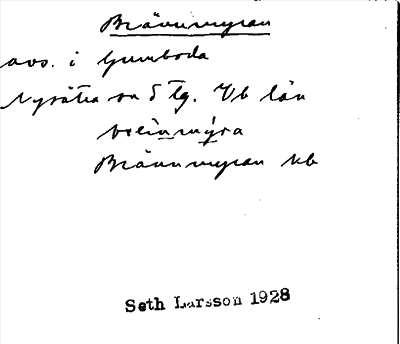 Brännmyran
avs. i Gumboda
Nysätra sn S tg. Vb län
bre̱i̱nmy̱ra
Brännmyran kb
Seth Larsson 1928